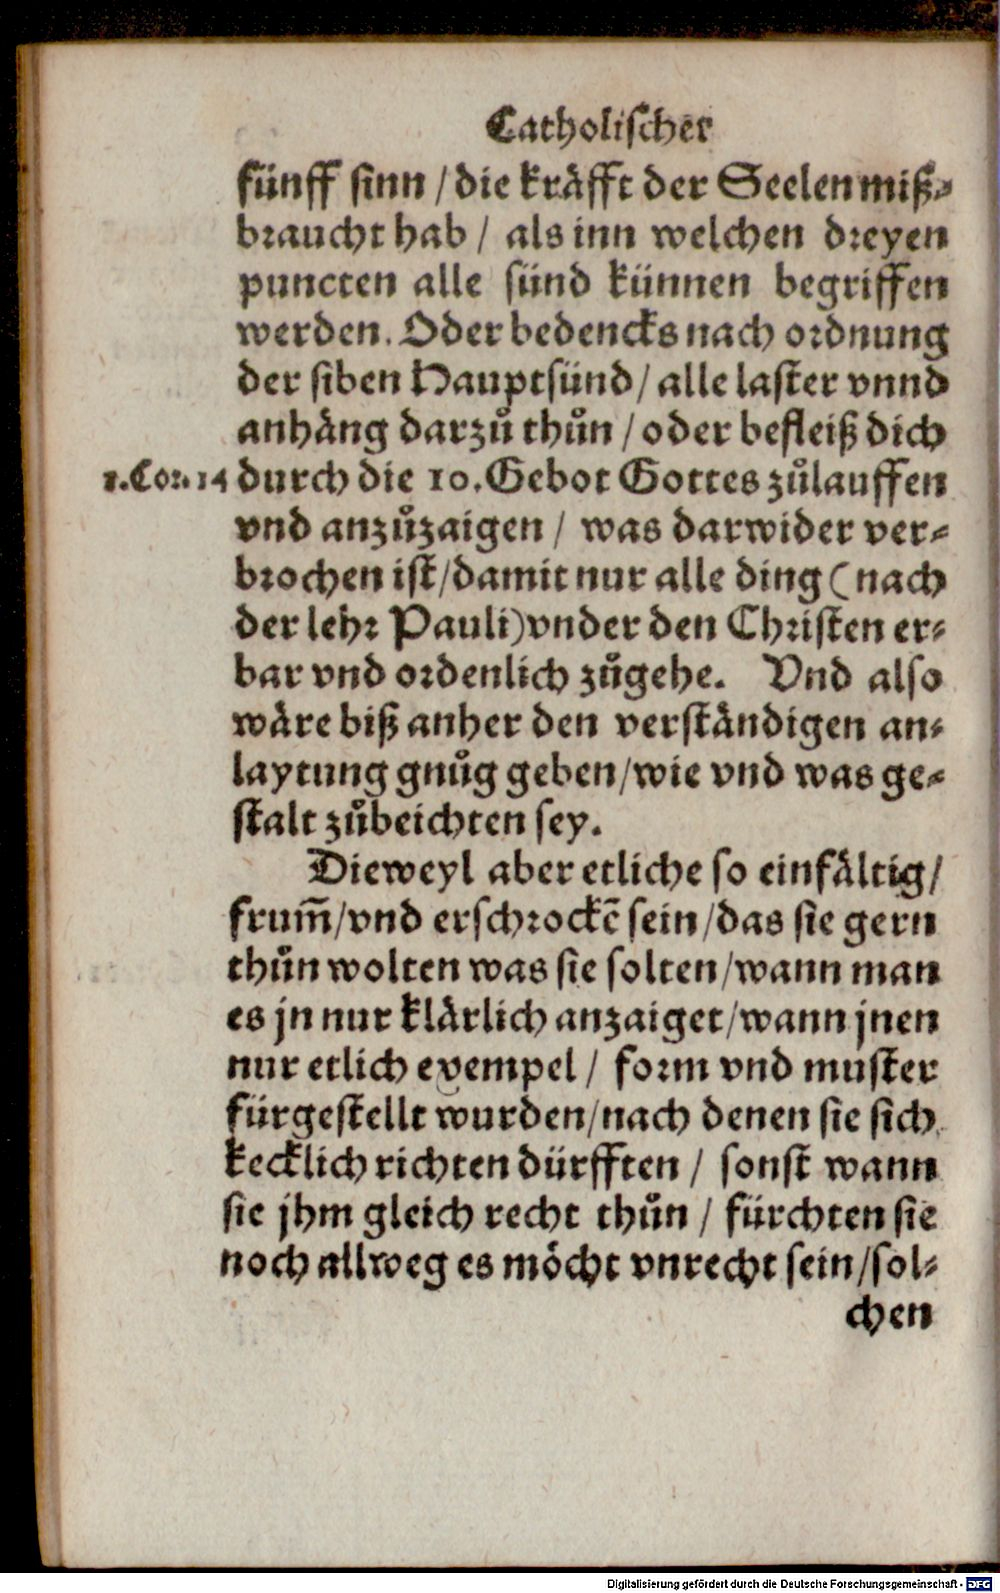 Catholischer
fünff sinn / die kräfft der Seelen miß-
braucht hab / als inn welchen dreyen
puncten alle sünd künnen begriffen
werden. Oder bedencks nach ordnung
der siben Hauptsünd / alle laster vnnd
anhäng darzů thůn / oder befleiß dich
1. Cor. 14 durch die 10. Gebot Gottes zůlauffen
vnd anzůzaigen / was darwider ver-
brochen ist / damit nur alle ding (nach
der lehr Pauli) vnder den Christen er-
bar vnd ordenlich zůgehe. Vnd also
wäre biß anher den verständigen an-
laytung gnůg geben / wie vnd was ge-
stalt zůbeichten sey.
Dieweyl aber etliche so einfältig /
frum̃ / vnd erschrockẽ sein / das sie gern
thůn wolten was sie solten / wann man
es jn nur klärlich anzaiget / wann jnen
nur etlich exempel / form vnd muster
fürgestellt wurden / nach denen sie sich
kecklich richten dürfften / sonst wann
sie jhm gleich recht thůn / fürchten sie
noch allweg es möcht vnrecht sein / sol-
chen
Digitalisierung gefördert durch die Deutsche Forschungsgemeinschaft - DFG